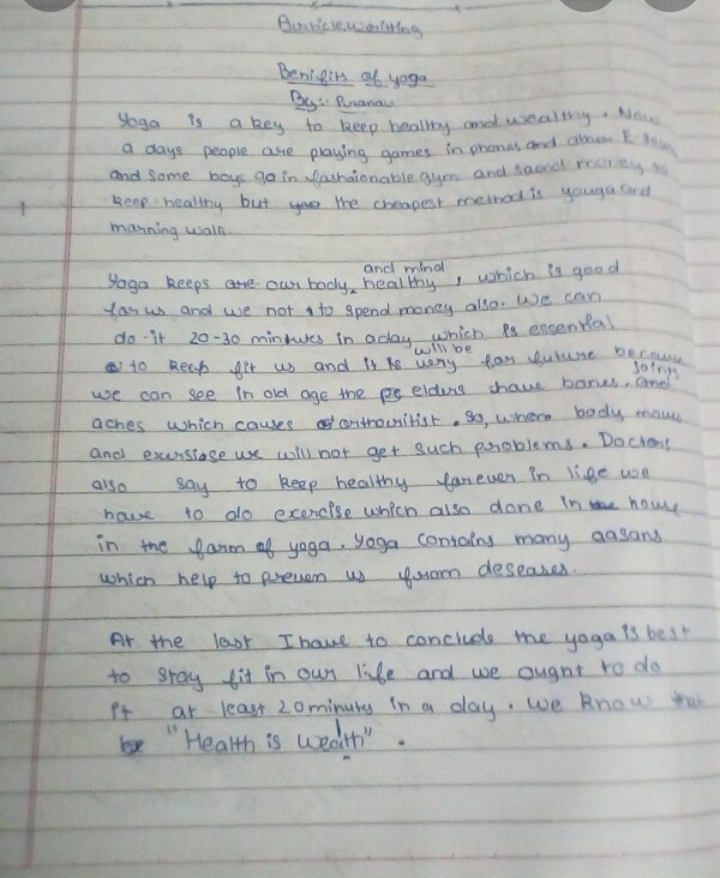 Article writing
Benifits of yoga
By:- Pranav
Yoga is a key to keep healthy and wealthy. Now
a days people are playing games in phones and
and some boys go in fashaionable gym and money to
keep healthy but the cheapest method is youga and
marning walk.
Yoga keeps are our body and mind healthy, which is good
for us and we not to spend money also. We can
do it 20-30 mintutes in aday which is essential
to keep fit us and it is will be very for future because
we can see in old age the elders have bones, joints and
aches which causes orthouritist. So, where body moves
and exersiose we will not get such problems. Doctors
also say to keep healthy forever in life we
have to do exercise which also done in house
in the farm of yoga. Yoga contains many aasans
which help to preven us from deseases.
At the last I have to conclude the yoga is best
to stay fit in our life and we ought to do
it at least 20 minuts in a day. We know that
"Health is wealth".